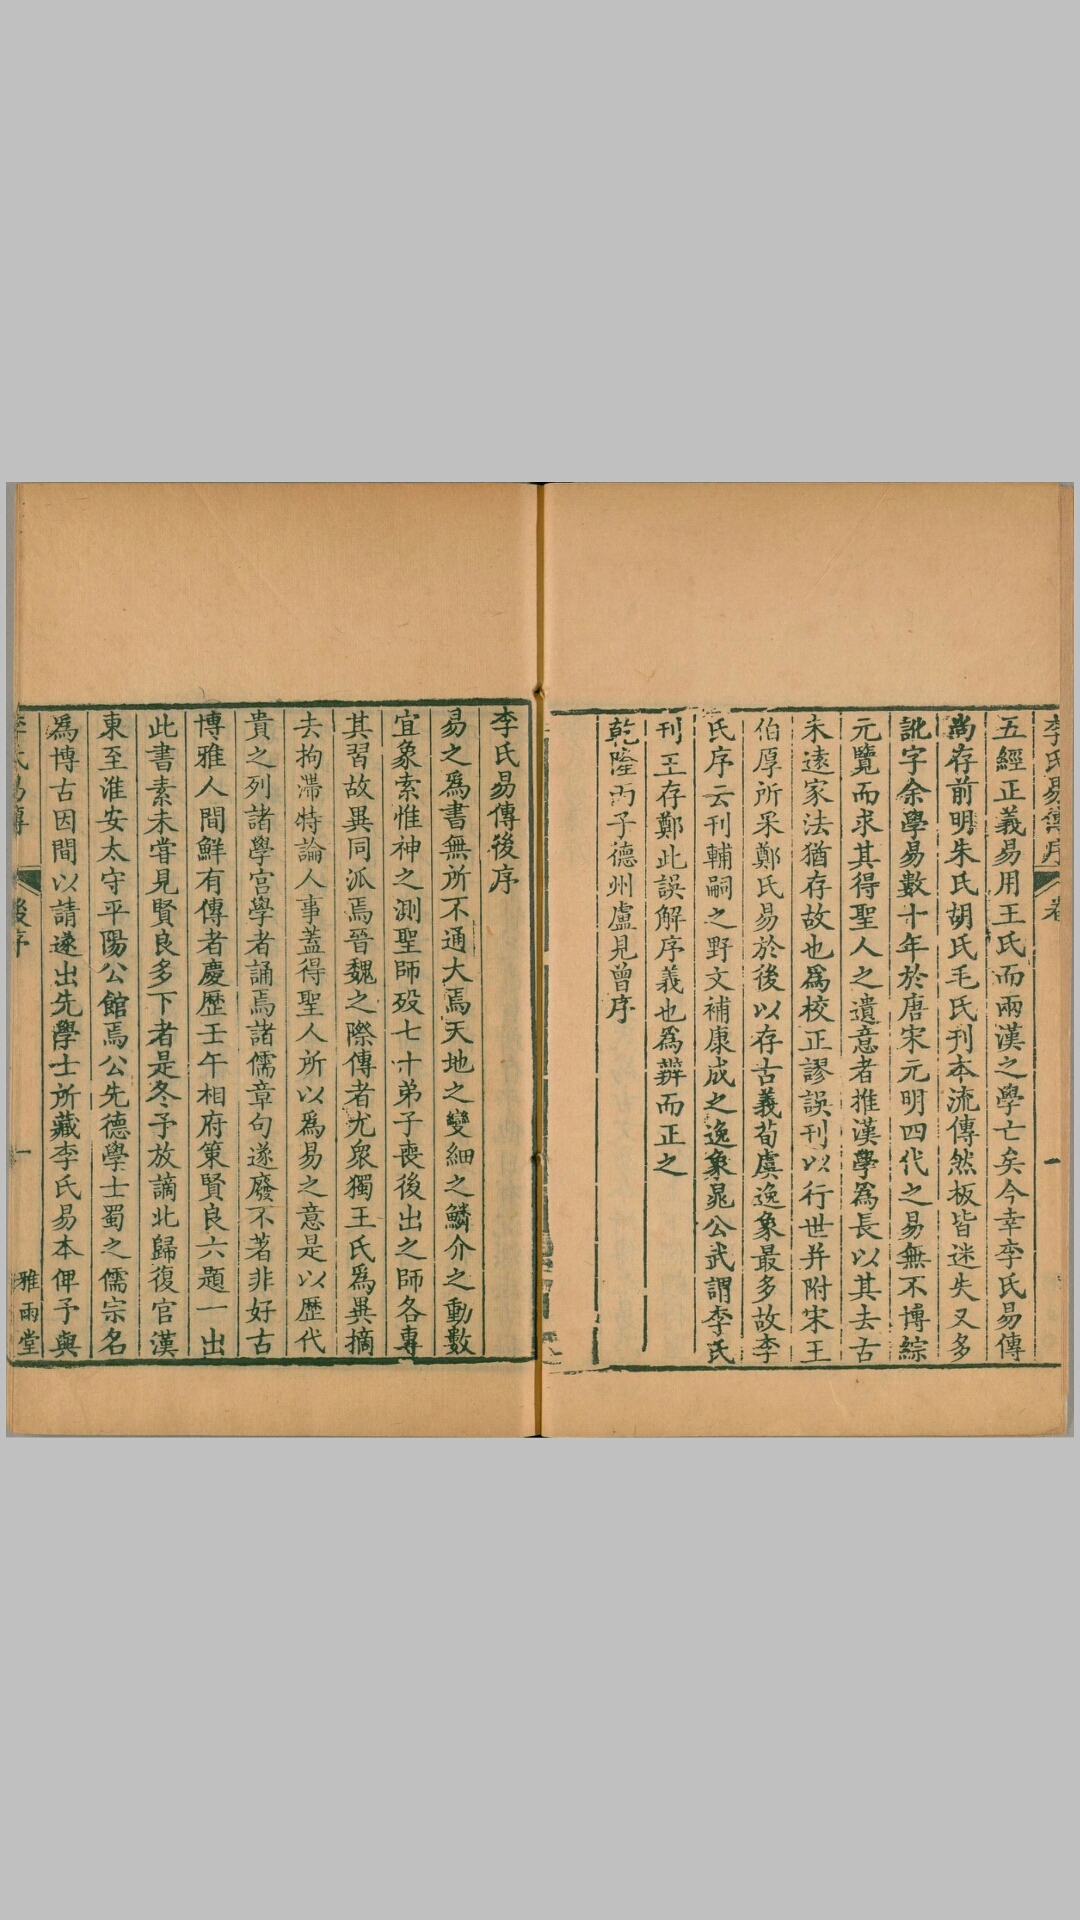 李氏易傳序
卷
一
五經正義易用王氏而兩漢之學亡矣今幸李氏易傳
尚存前明朱氏胡氏毛氏刊本流傳然板皆迷失又多
訛字余學易數十年於唐宋元明四代之易無不博綜
元覽而求其得聖人之遺意者推漢學爲長以其去古
未遠家法猶存故也爲校正謬誤刊以行世并附宋王
伯厚所采鄭氏易於後以存古義荀虞逸象最多故李
氏序云刊輔嗣之野文補康成之逸象晁公武謂李氏
刊王存鄭此誤解序義也爲辨而正之
乾隆丙子德州盧見曾序
李氏易傳後序
易之爲書無所不通大焉天地之變細之鱗介之動數
宜象索惟神之測聖師殁七十弟子喪後出之師各專
其習故異同派焉晉魏之際傳者尤衆獨王氏爲異摘
去拘滯特論人事蓋得聖人所以爲易之意是以歷代
貴之列諸學宮學者誦焉諸儒章句遂廢不著非好古
博雅人間鮮有傳者慶歷壬午相府策賢良六題一出
此書素未嘗見賢良多下者是冬予放謫北歸復官漢
東至淮安太守平陽公館焉公先德學士蜀之儒宗名
爲博古因間以請遂出先學士所藏李氏易本俾予與
李氏易傳
後序
一
雅雨堂